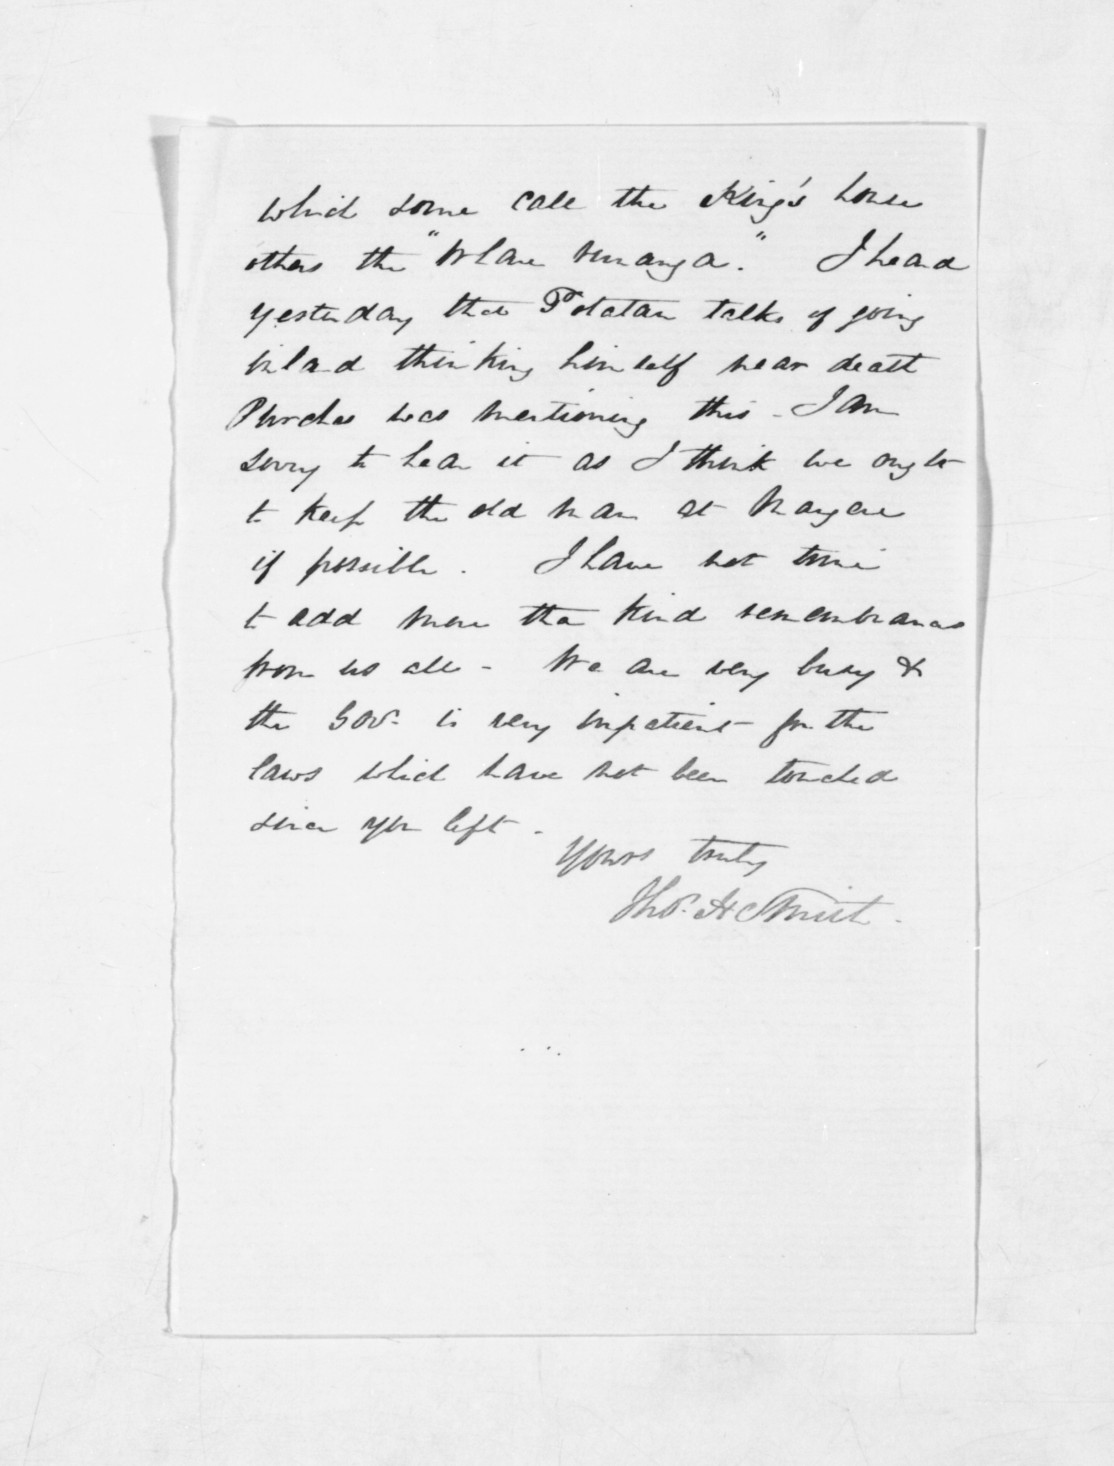 which some call the King's house
others the "Whare runanga." I heard
yesterday that Potatau talks of going
inland thinking himself near death
Purchas was mentioning this - I am
sorry to hear it as I think we ought
to keep the old man at Mangere
if possible. I have not time
to add more than kind remembrances
from us all - We are very busy &
the Gov. is very impatient for the
laws which have not been touched
since you left -
Yours truly
Thos. H Smith.